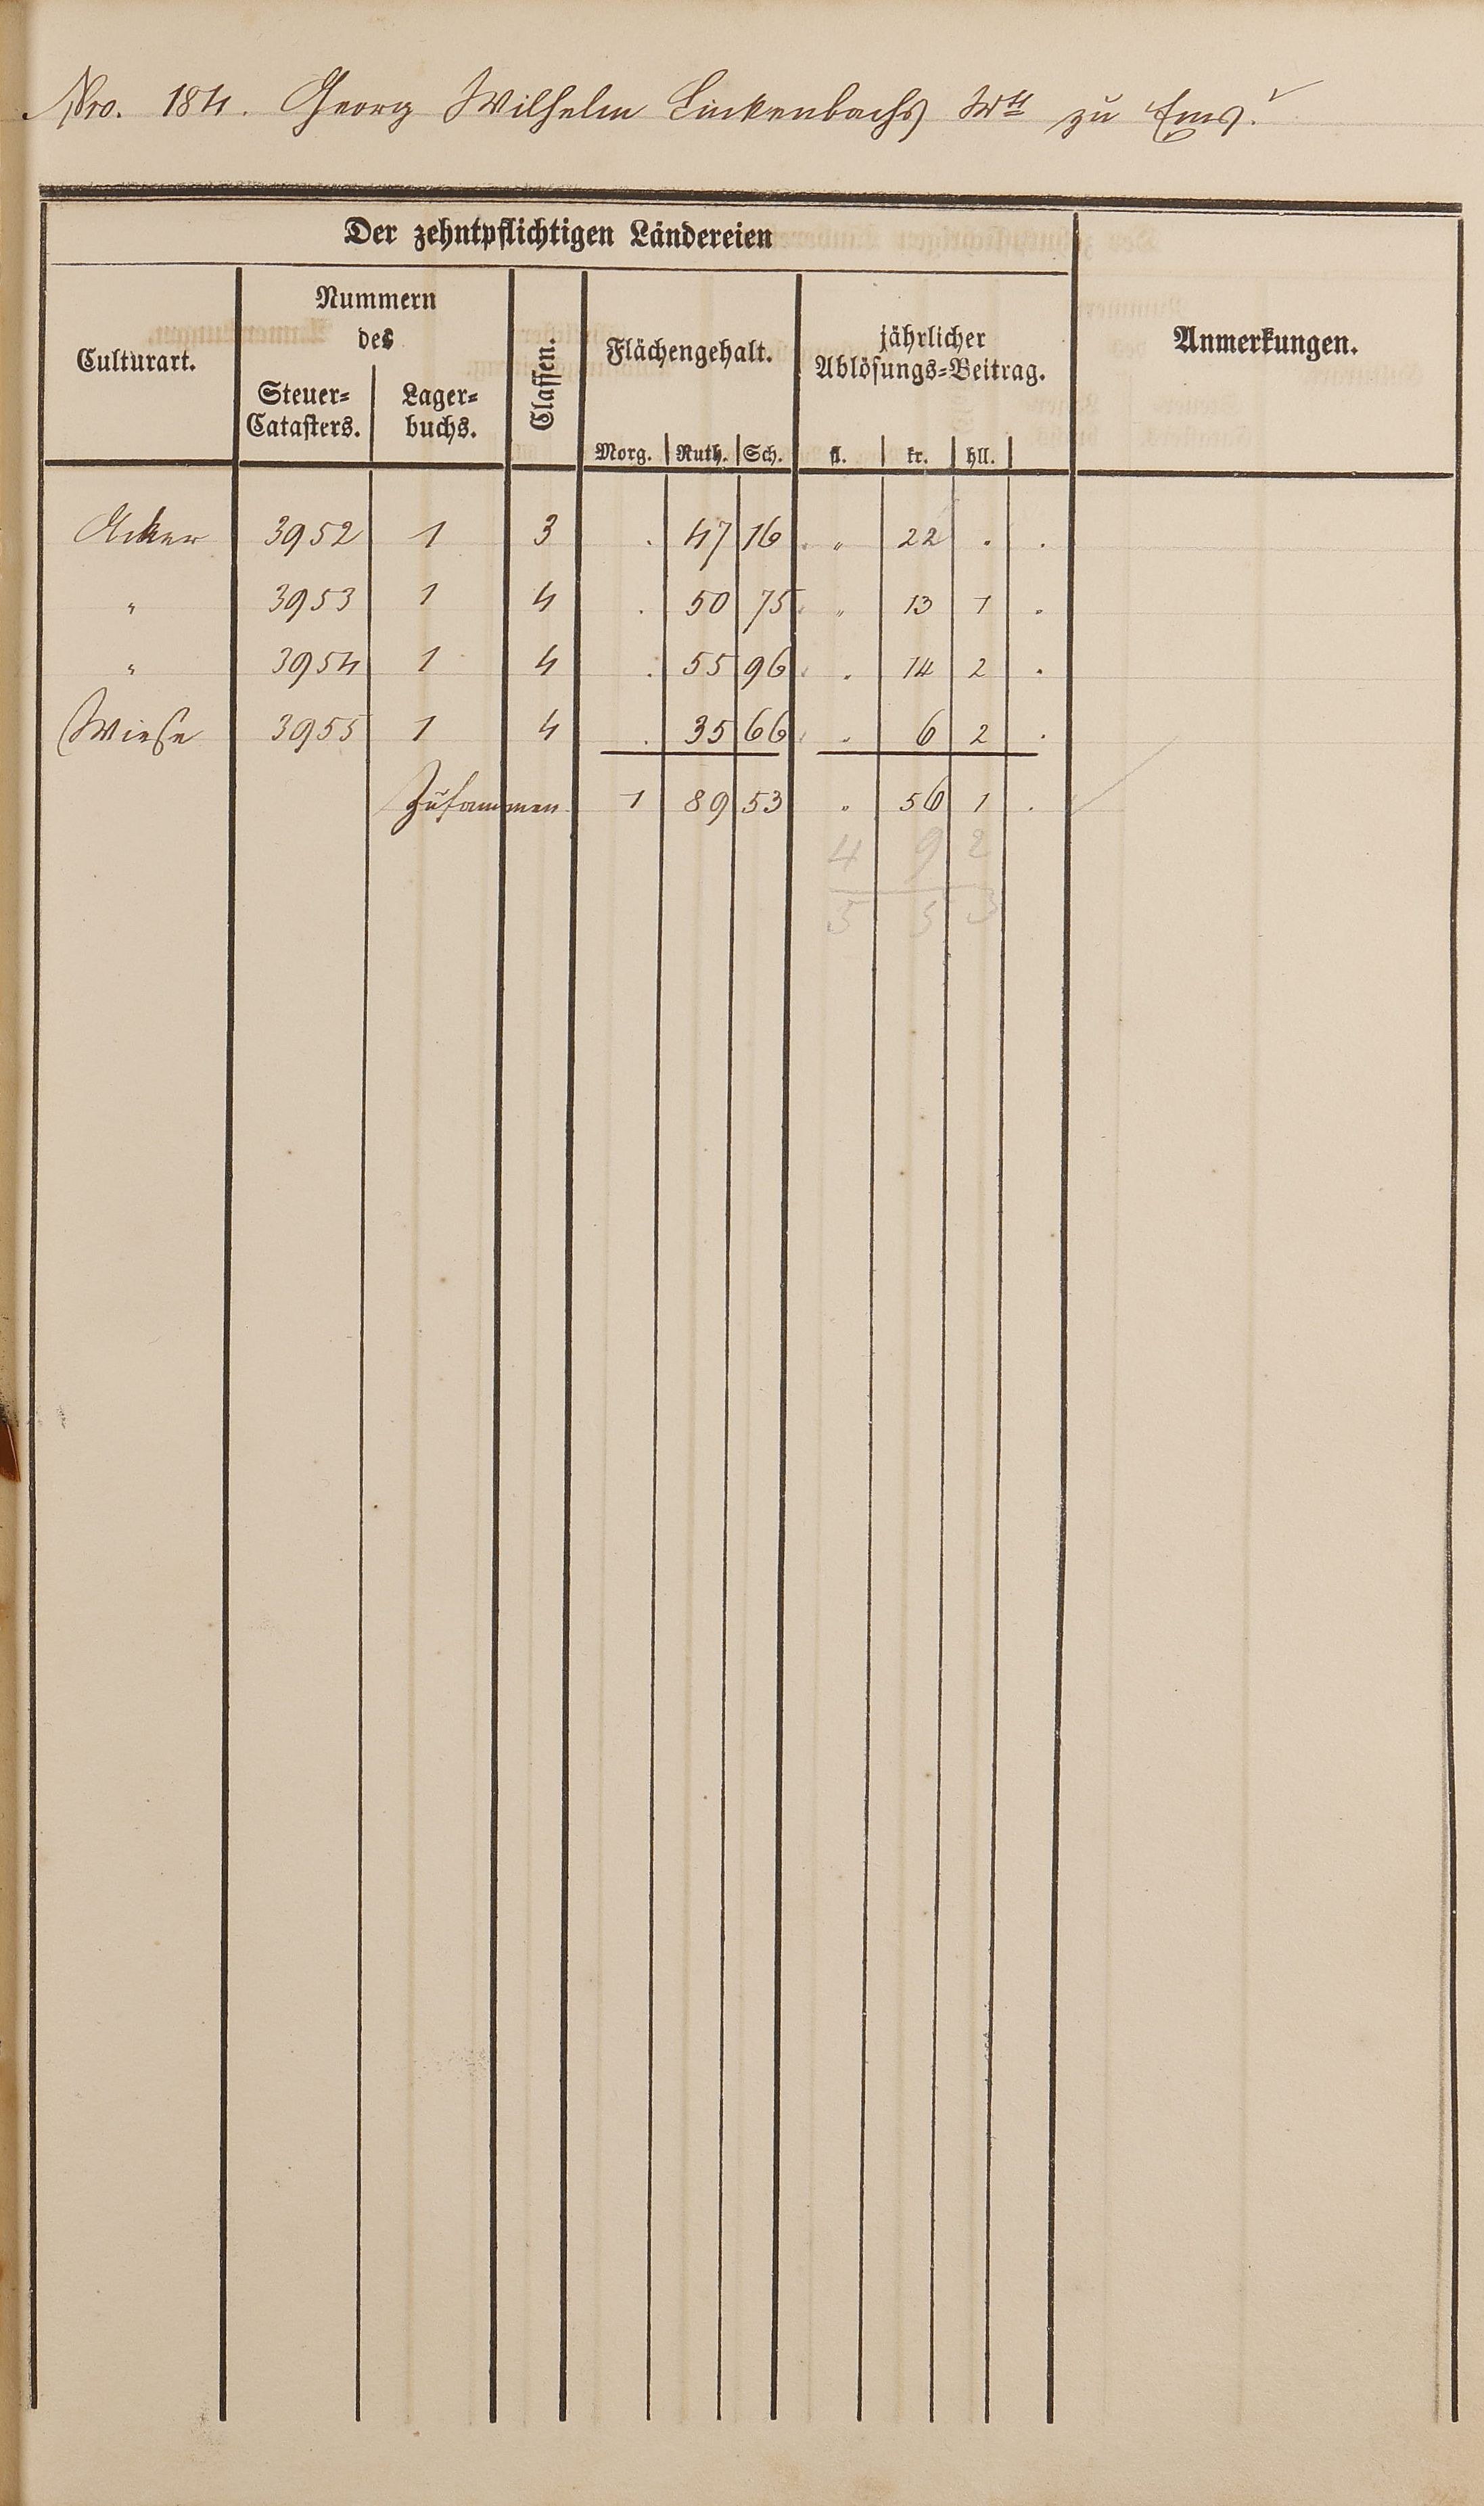 Nro. 184. Georg Wilhelm Linkenbachs Wtt zu Ems.
Der zehntpflichtigen Ländereien
Culturart.
Nummern
des
Steuer=
Catasters.
Lager=
buchs.
Classen.
Flächengehalt.
Morg. Ruth. Sch.
jährlicher
Ablösungs=Beitrag.
fl. kr. hll.
Anmerkungen.
Acker 3952 1 3 . 47 16 „ 22 . .
„ 3953 1 4 . 50 75 „ 13 1 .
„ 3954 1 4 . 55 96 . 14 2 .
Wiese 3955 1 4 . 35 66 . 6 2 .
Zusammen 1 89 53 „ 56 1 .
4 9 2
5 5 3